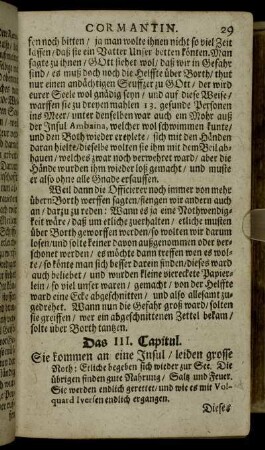 CORMANTIN. 29
sen noch bitten / ja man wolte ihnen nicht so viel Zeit
lassen / daß sie ein Vatter Unser betten könten. Man
sagte zu ihnen / GOtt siehet wol / daß wir in Gefahr
sind / es muß doch noch die Helffte über Borth / thut
nur einen andächtigen Seuffzer zu GOtt / der wird
eurer Seele wol gnädig seyn / und auf diese Weise /
warffen sie zu dreyen mahlen 13. gesunde Personen
ins Meer / unter denselben war auch ein Mohr auß
der Insul Ambaina, welcher wol schwimmen kunte /
und den Both wieder ereylete / sich mit den Händen
daran hielte / dieselbe wolten sie ihm mit dem Beil abs
hauen / welches zwar noch verwehret ward / aber die
Hände wurden ihm wieder loß gemacht / und muste
er also ohne alle Gnade ersauffen.
Weil dann die Officierer noch immer von mehr
übern Borth werffen sagten / fiengen wir andern auch
an / darzu zu reden: Wann es ja eine Nothwendig-
keit wäre / daß um etliche zuerhalten / etliche müsten
über Borth geworffen werden / so wolten wir darum
losen / und solte keiner davon außgenommen oder ver-
schonet werden / es möchte dann treffen wen es wol-
te / so könte man sich besser darein finden / dieses ward
auch beliebet / und wurden kleine viereckete Papier-
lein / so viel unser waren / gemacht / von der Helffte
ward eine Ecke abgeschnitten / und also allesamt zu-
gedrehet. Wann nun die Gefahr groß ward / solten
sie greiffen / wer ein abgeschnittenen Zettel bekam /
solte über Borth tantzen.
Das III. Capitul.
Sie kommen an eine Insul / leiden grosse
Noth: Etliche begeben sich wieder zur See. Die
übrigen finden gute Nahrung / Saltz und Feuer.
Sie werden endlich gerettet / und wie es mit Vol-
quard Iversen endlich ergangen.
Dieses